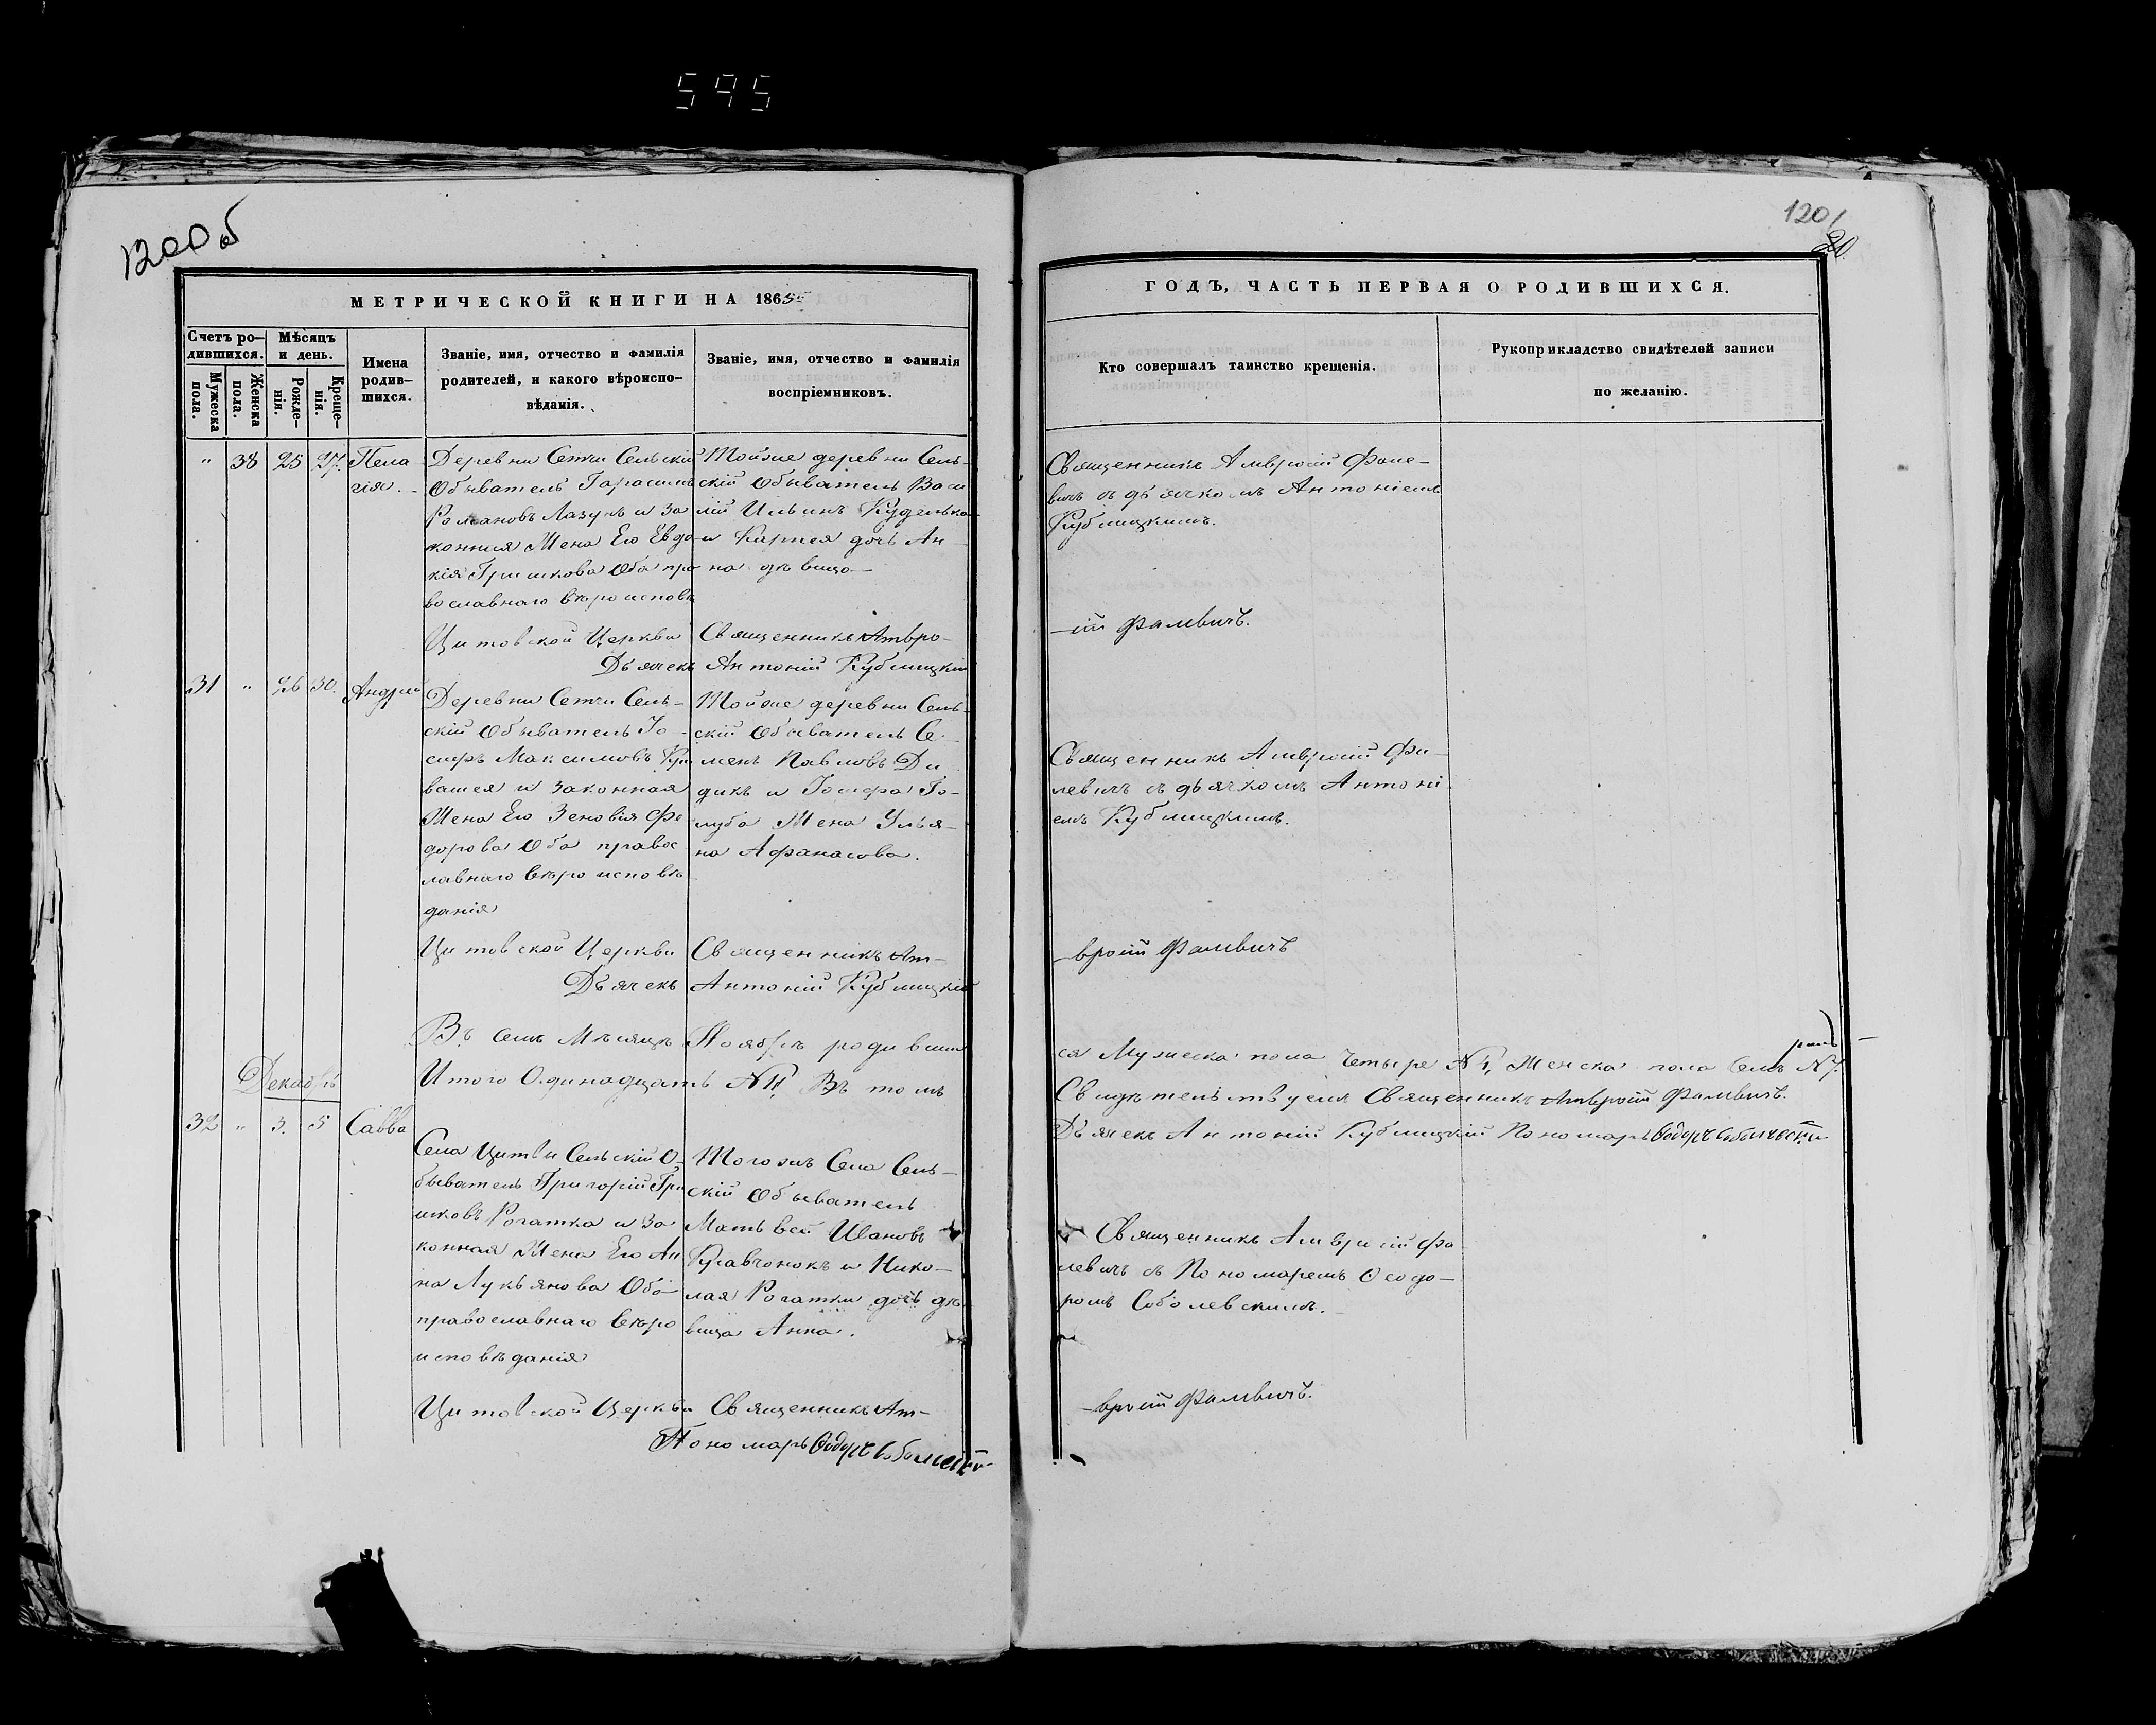 595
1200об
1201
20
МЕТРИЧЕСКОЙ КНИГИ НА 1865
ГОДЪ, ЧАСТЬ ПЕРВАЯ О РОДИВШИХСЯ.
Счетъ ро-
дившихся.
Мужеска
пола.
Женска
пола.
Мѣсяцъ
и день.
Рожде-
нія.
Креще-
нія.
Имена
родив-
шихся.
Званіе, имя, отчество и фамилія
родителей, и какого вѣроиспо-
вѣданія.
Званіе, имя, отчество и фамилія
воспріемниковъ.
Кто совершалъ таинство крещенія.
Рукоприкладство свидѣтелей записи
по желанію.
" 38 25 27. Пела
гія.
Деревни Сетчи Сельскій
Обыватель Гарасимъ
Романовъ Лазукъ и За
конная Жена Его Евдо
кія Гришкова Оба пра
вославнаго вѣроисповѣ
Тойже деревни Сель-
скій Обыватель Васи
лій Ильинъ Куделько
и Карпея дочь Ан-
на дѣвица
Священникъ Амвросій Фале-
вичъ съ дьячкомъ Антоніемъ
Кублицкимъ.
Цитовской Церкви Священникъ Амвро-
-сій Фалевичъ.
Дьячекъ Антоній Кублицкій
31 " 26 30. Андрей
Деревни Сетчи Сель-
скій Обыватель Іо-
сифъ Максимовъ Кри
вошея и Законная
Жена Его Зеновія Фе
дорова Оба правос
лавнаго вѣроисповѣ
данія
Тойже деревни Сель-
скій Обыватель Се-
менъ Павловъ Ди
дикъ и Іосифа Го-
луба Жена Улья-
на Афанасова.
Священникъ Амвросій Фа-
левичъ съ дьячкомъ Антоні-
емъ Кублицкимъ.
Цитовской Церкви Священникъ Ам-
-вросій Фалевичъ
Дьячекъ Антоній Кублицкій
Въ семъ Мѣсяцѣ Ноябрѣ родивши
ся Мужеска пола Четыре №4, Женска пола Семь №7.
Итого Одинадцать №11, Въ томъ
Свидѣтельствуемъ Священникъ Амвросій Фалевичъ.
Дьячекъ Антоній Кублицкій Пономарь Ѳеодоръ Соболевскій
Декабрь
32 " 3. 5 Савва
Села Цитвы Сельскій О-
быватель Григорій Гри
шковъ Рогатка и За
конная Жена Его Ан
на Лукьянова Оба
православнаго вѣро
исповѣданія
Тогожъ Села Сель-
скій Обыватель
Матьвей Ивановъ
Кравчонокъ и Нико-
лая Рогатки дочь дѣ
вица Анна.
Священникъ Амвросій Фа
левичъ съ Пономаремъ Ѳеодо-
ромъ Соболевскимъ.
Цитовской Церкви Священникъ Ам-
-вросій Фалевичъ.
Пономарь Ѳеодоръ Соболевскій